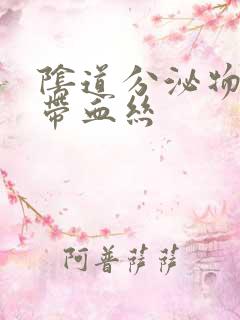 陰道分泌物
帶血絲
阿普薩薩